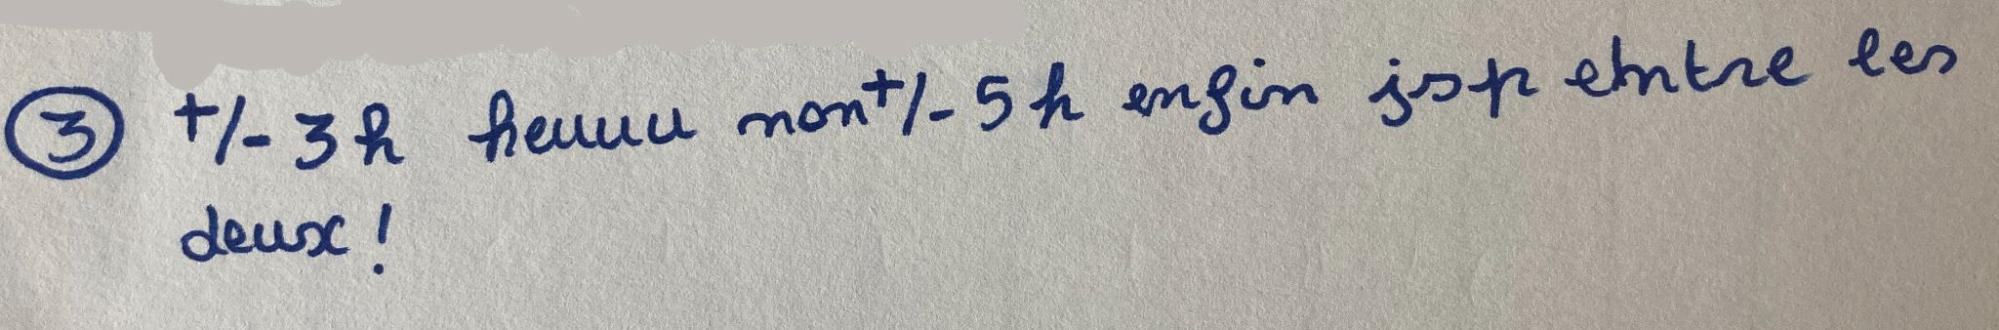 ③ +/- 3h heuuu non +/- 5h enfin jsp entre les
deux !